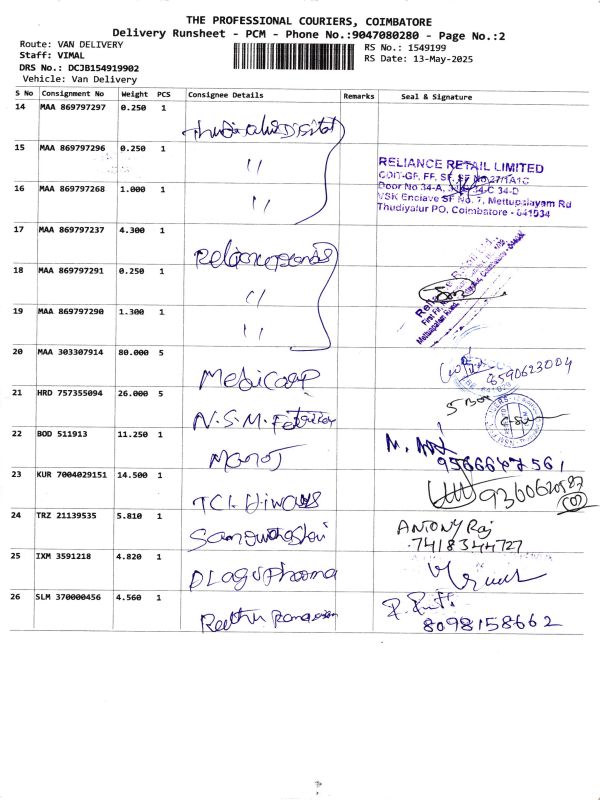 THE PROFESSIONAL COURIERS, COIMBATORE
Delivery Runsheet - PCM - Phone No.:9047080280 - Page No.:2
Route: VAN DELIVERY
Staff: VIMAL
DRS No.: DCJB154919902
Vehicle: Van Delivery
RS No.: 1549199
RS Date: 13-May-2025
S No Consignment No Weight PCS Consignee Details Remarks Seal & Signature
14 MAA 869797297 0.250 1
15 MAA 869797296 0.250 1 "
16 MAA 869797268 1.000 1 "
RELIANCE RETAIL LIMITED
Door No 34-A, 34-C 34-D
VSK Enclave SF No. 7, Mettupalayam Rd
Thudiyalur PO, Coimbatore - 641034
17 MAA 869797237 4.300 1
18 MAA 869797291 0.250 1 "
19 MAA 869797290 1.300 1 "
20 MAA 303307914 80.000 5 Medicorp 8590623004
21 HRD 757355094 26.000 5 N.S.M. 5 Box
22 BOD 511913 11.250 1 Manoj 9566647561
23 KUR 7004029151 14.500 1 TCI Hiways
24 TRZ 21139535 5.810 1 ANTONY Raj
7418344727
25 IXM 3591218 4.820 1 Pharma
26 SLM 370000456 4.560 1 Reethu
8098158662